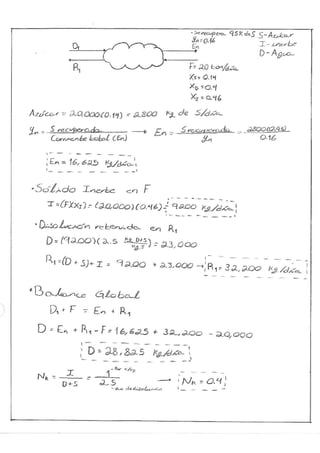 -Se recupera 95% de S S-Azúcar
yn=0.16 I-inerte
En D-Agua
D1
R1
F=20 ton/día
Xs=0.14
XD=0.4
XI=0.46
Azúcar = 20,000(0.14) = 2,800 kg de S/día
yn = S recuperada / Corriente total (En) → En = S recuperada / yn = 2800(0.95) / 0.16
En = 16,625 kg/día
•Sólido Inerte en F
I=(F)(XI)=(20,000)(0.46)= 9200 kg/día
•Disolución retenida en R1
D=(9200)(2.5 kg D+S / kg I) = 23,000
R1=(D+S)+I = 9200 + 23,000 → R1= 32,200 kg/día
•Balance Global
D1 + F = En + R1
D = En + R1 - F = 16,625 + 32,200 - 20,000
D = 28,825 kg/día
Nn = I / D+S = 1 / 2.5 → Nn = 0.4